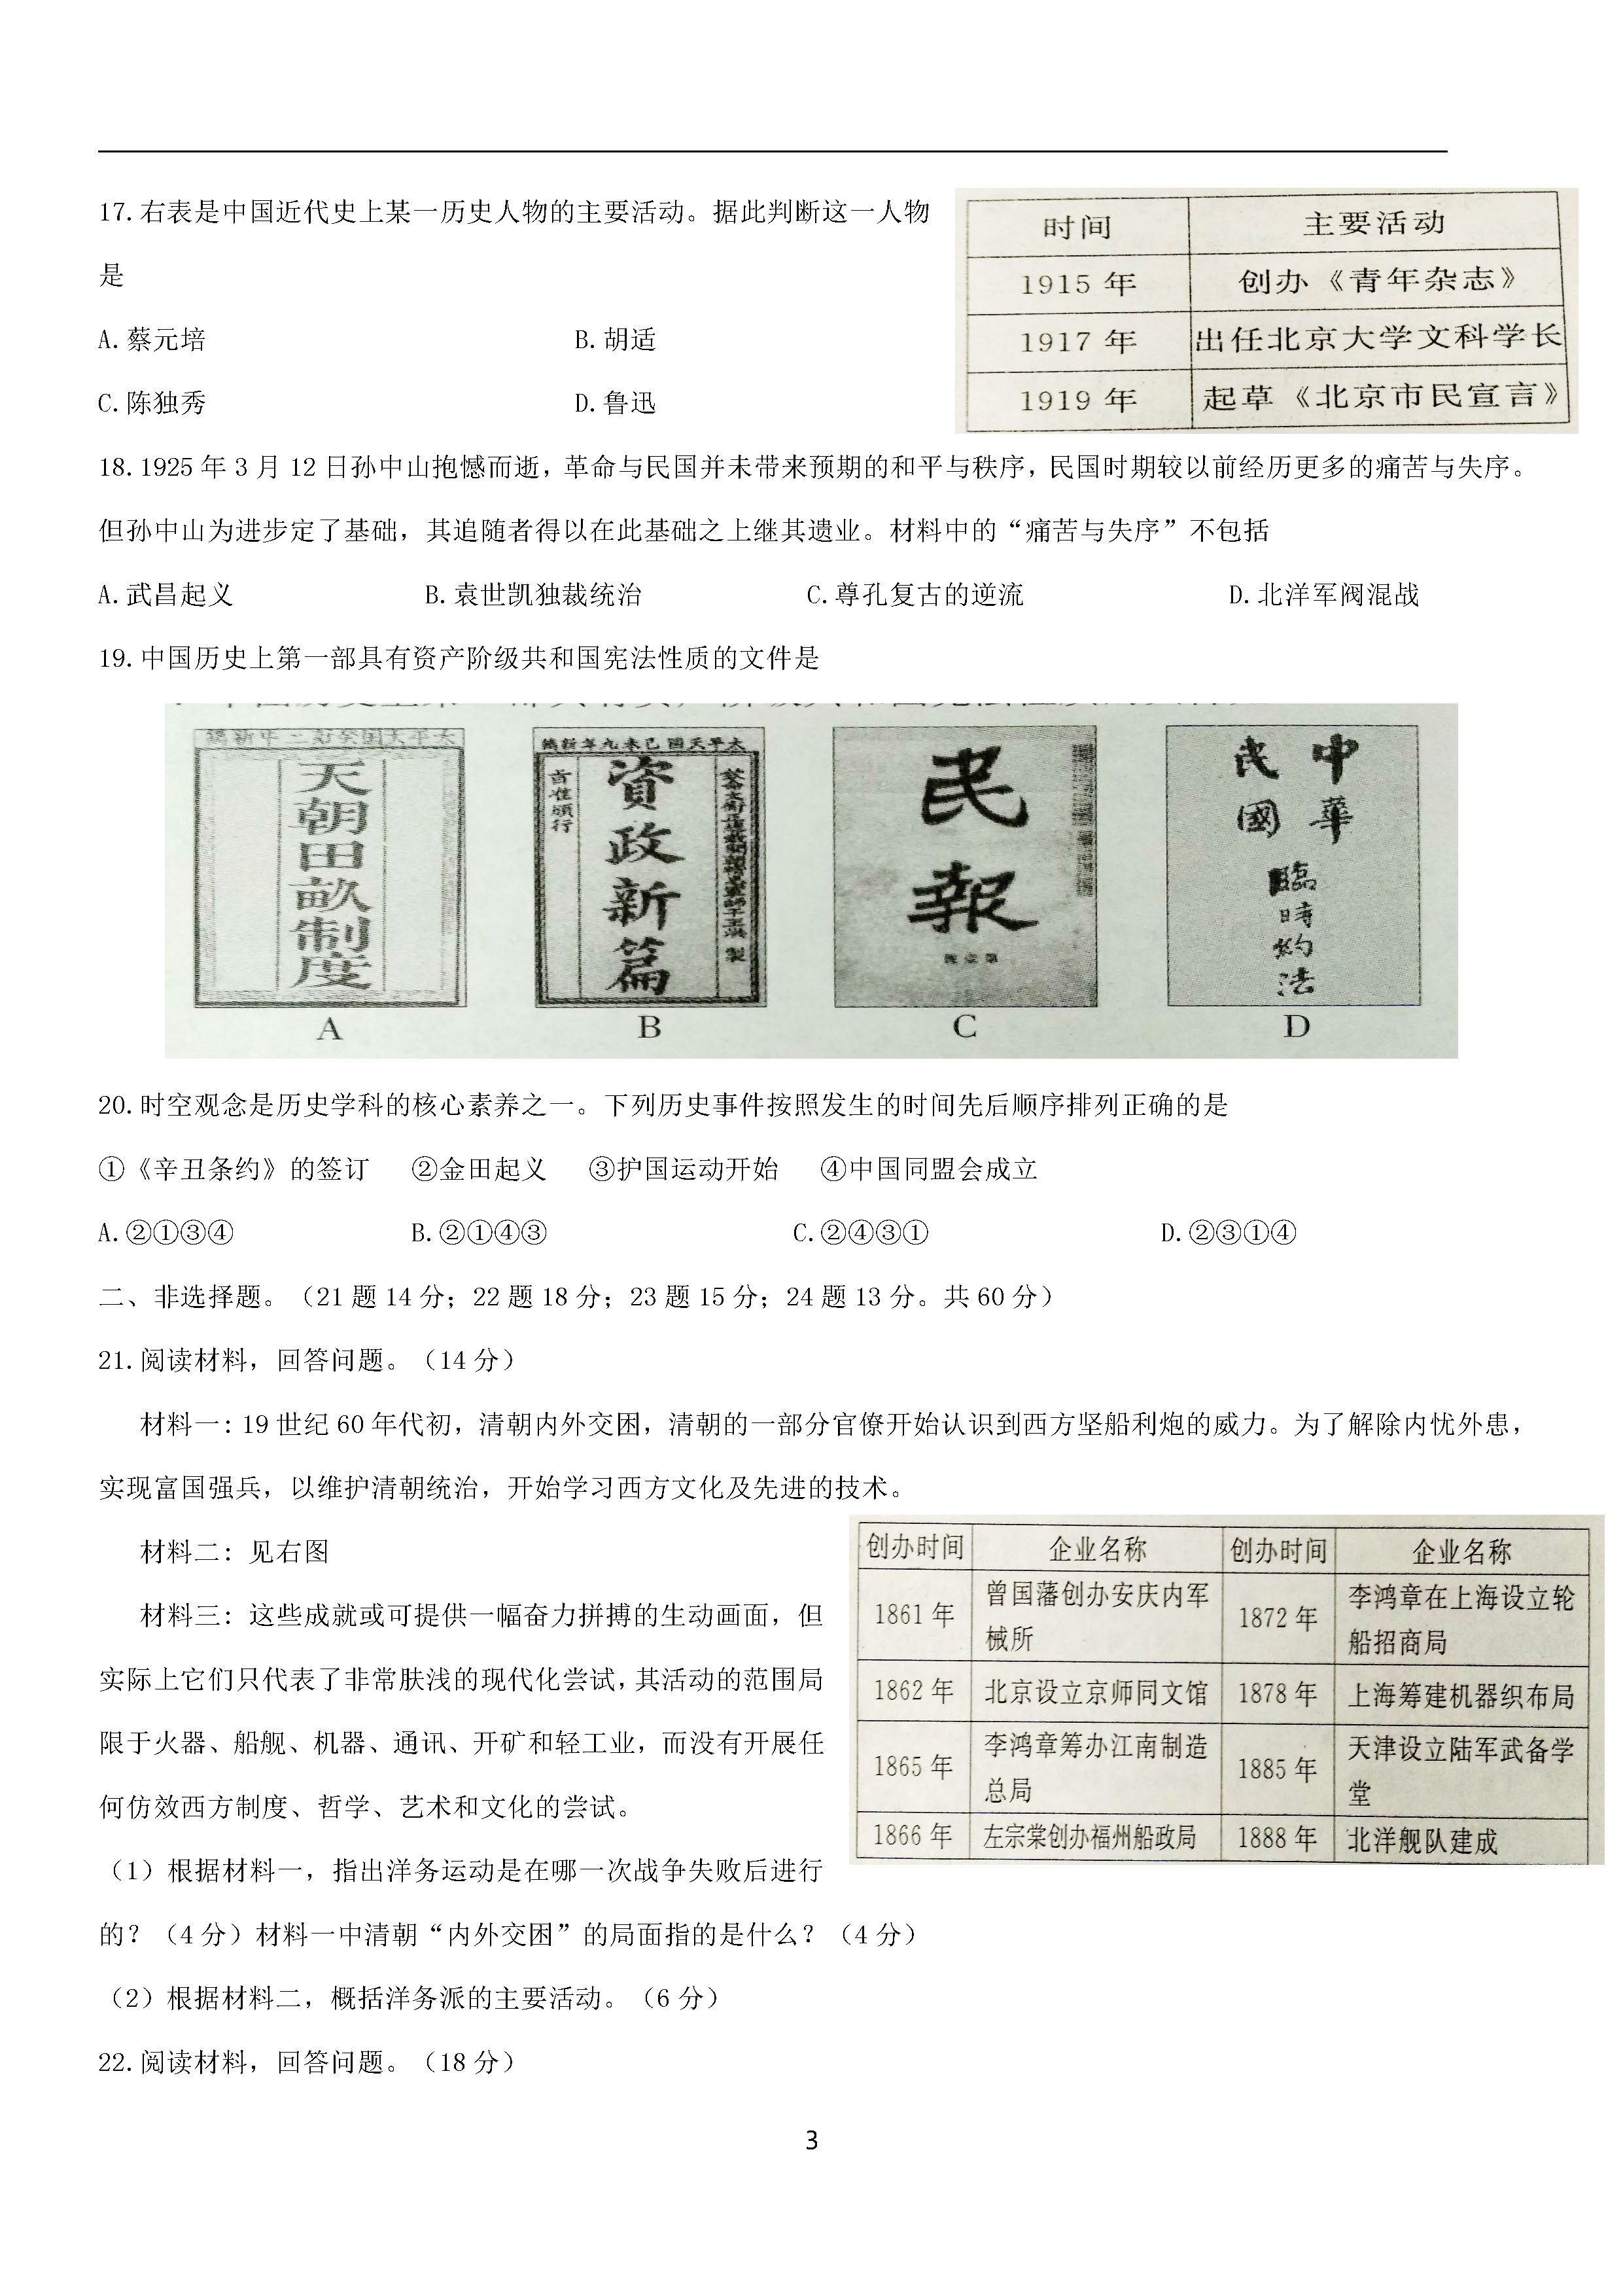 17.右表是中国近代史上某一历史人物的主要活动。据此判断这一人物
是
A.蔡元培 B.胡适
C.陈独秀 D.鲁迅
时间 主要活动
1915 年 创办《青年杂志》
1917 年 出任北京大学文科学长
1919 年 起草《北京市民宣言》
18.1925 年 3 月 12 日孙中山抱憾而逝，革命与民国并未带来预期的和平与秩序，民国时期较以前经历更多的痛苦与失序。
但孙中山为进步定了基础，其追随者得以在此基础之上继其遗业。材料中的“痛苦与失序”不包括
A.武昌起义 B.袁世凯独裁统治 C.尊孔复古的逆流 D.北洋军阀混战
19.中国历史上第一部具有资产阶级共和国宪法性质的文件是
天朝田畝制度
太平天國己未九年新鐫
旨准頒行
資政新篇
民報
中華民國臨時約法
A B C D
20.时空观念是历史学科的核心素养之一。下列历史事件按照发生的时间先后顺序排列正确的是
①《辛丑条约》的签订 ②金田起义 ③护国运动开始 ④中国同盟会成立
A.②①③④ B.②①④③ C.②④③① D.②③①④
二、非选择题。（21 题 14 分；22 题 18 分；23 题 15 分；24 题 13 分。共 60 分）
21.阅读材料，回答问题。（14 分）
材料一：19 世纪 60 年代初，清朝内外交困，清朝的一部分官僚开始认识到西方坚船利炮的威力。为了解除内忧外患，
实现富国强兵，以维护清朝统治，开始学习西方文化及先进的技术。
材料二：见右图
材料三：这些成就或可提供一幅奋力拼搏的生动画面，但
实际上它们只代表了非常肤浅的现代化尝试，其活动的范围局
限于火器、船舰、机器、通讯、开矿和轻工业，而没有开展任
何仿效西方制度、哲学、艺术和文化的尝试。
创办时间 企业名称 创办时间 企业名称
1861 年 曾国藩创办安庆内军械所 1872 年 李鸿章在上海设立轮船招商局
1862 年 北京设立京师同文馆 1878 年 上海筹建机器织布局
1865 年 李鸿章筹办江南制造总局 1885 年 天津设立陆军武备学堂
1866 年 左宗棠创办福州船政局 1888 年 北洋舰队建成
（1）根据材料一，指出洋务运动是在哪一次战争失败后进行
的？（4 分）材料一中清朝“内外交困”的局面指的是什么？（4 分）
（2）根据材料二，概括洋务派的主要活动。（6 分）
22.阅读材料，回答问题。（18 分）
3